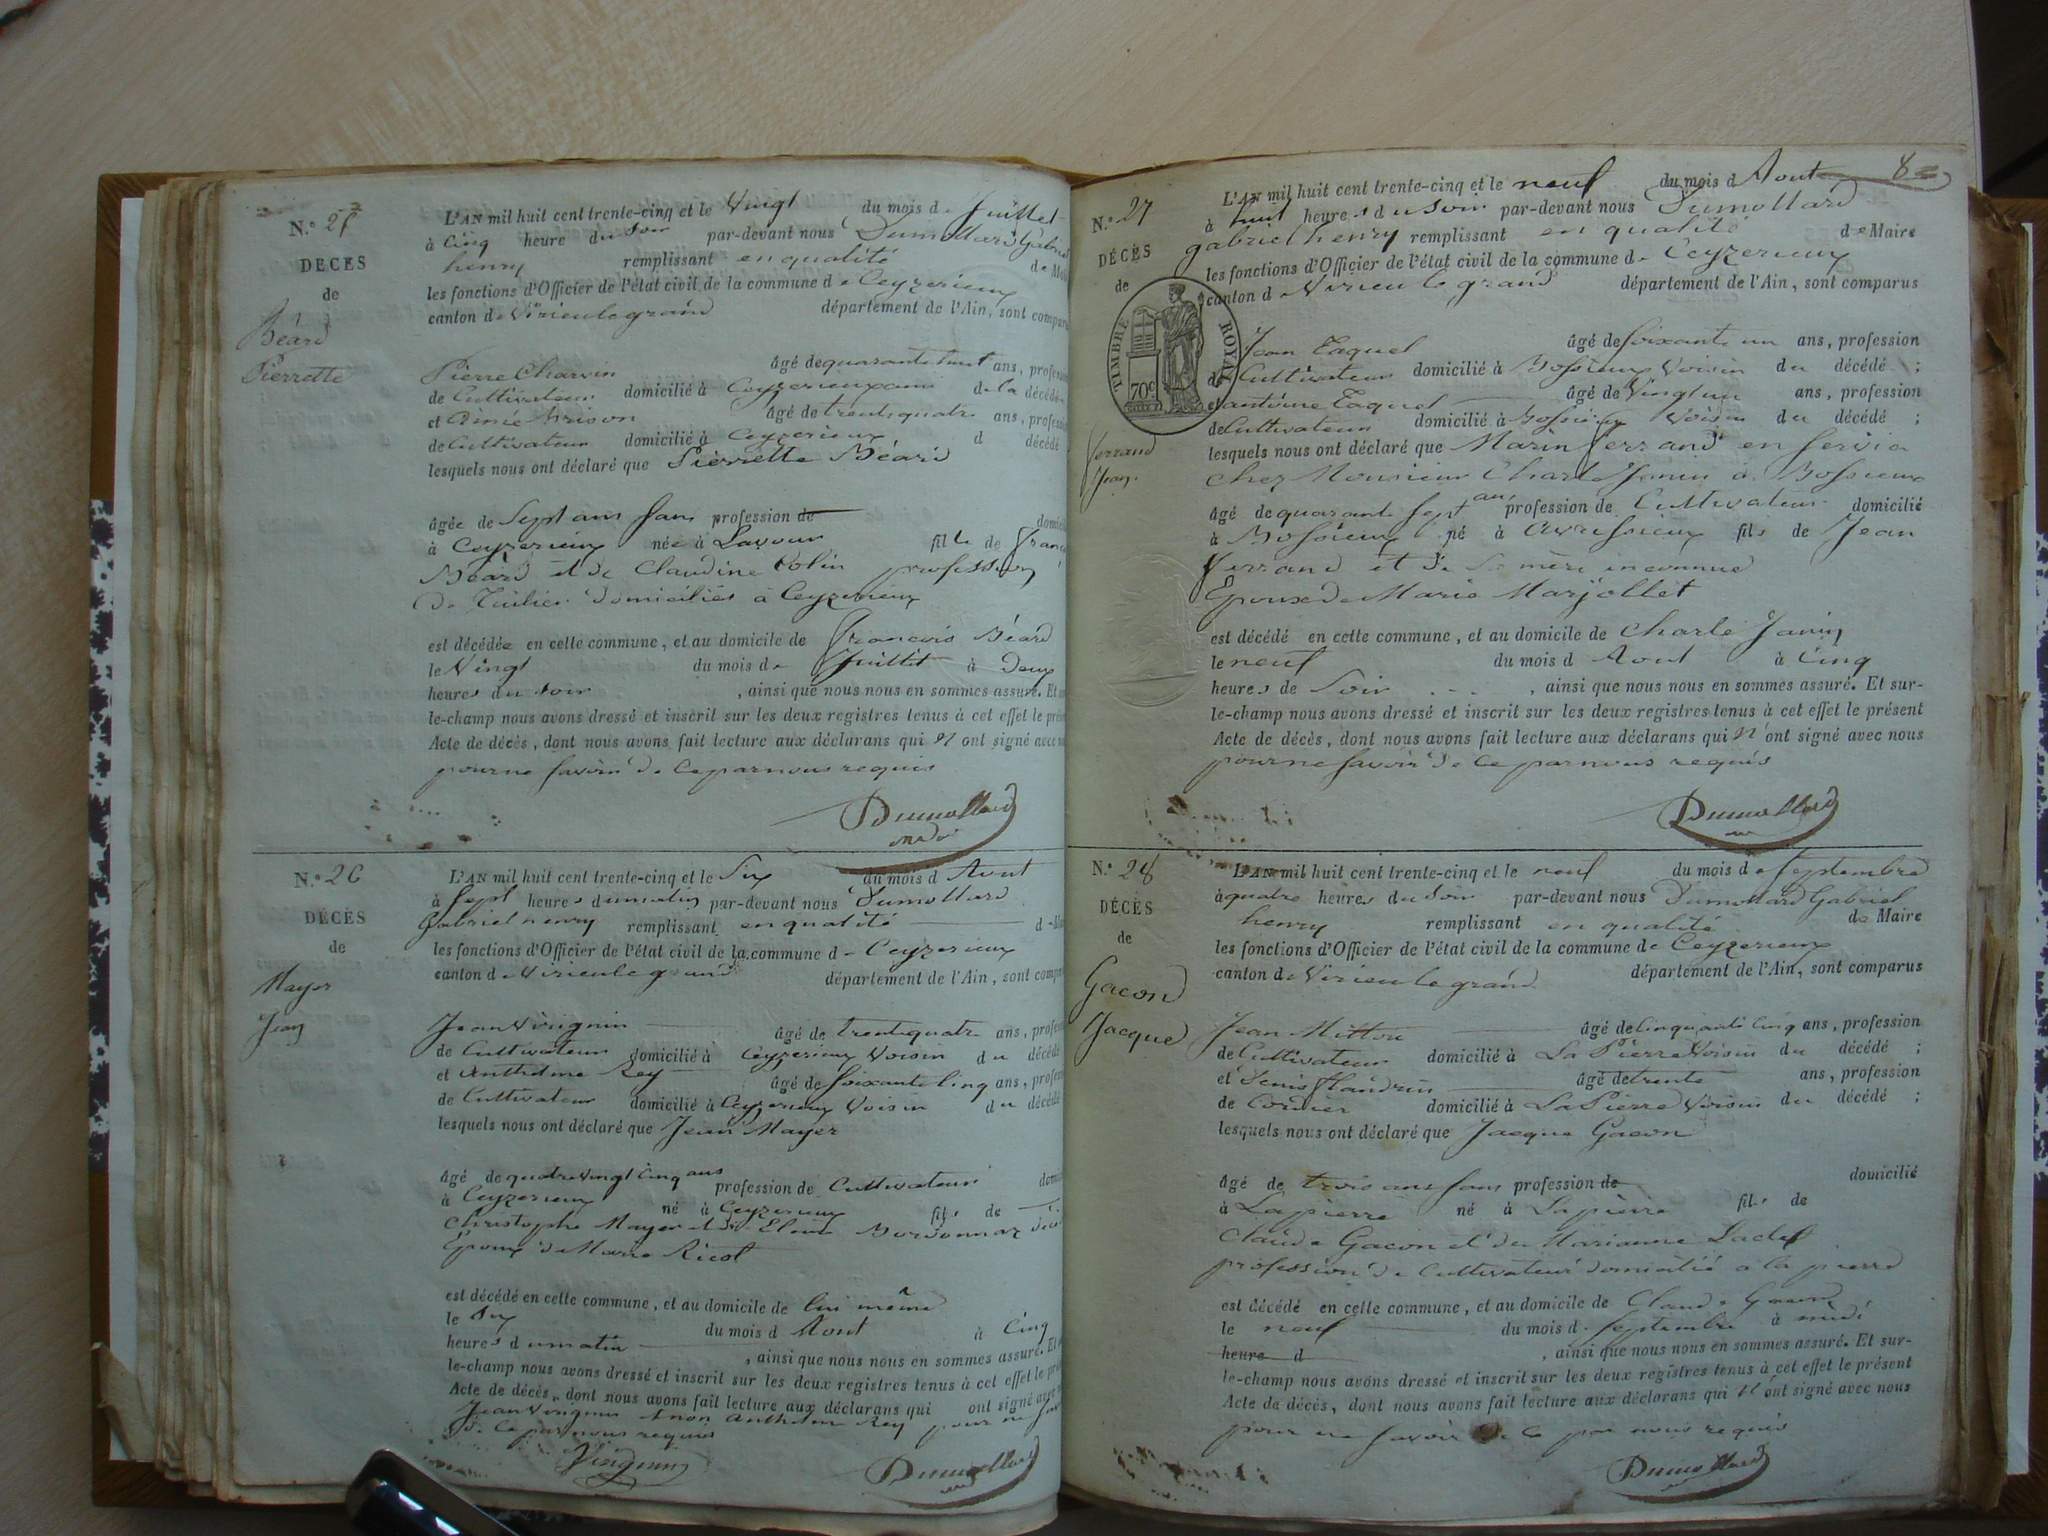 N.° 25
DÉCÈS
de
Béard
Pierrette
L'AN mil huit cent trente-cinq et le Vingt du mois de Juillet
à Cinq heure du Soir par-devant nous Dumollard Gabriel
henry remplissant en qualité de
les fonctions d'Officier de l'état civil de la commune de Ceyzerieux
canton de Virieu le grand département de l'Ain, sont
Pierre Charvin âgé de quarante huit ans,
de Cultivateur domicilié à Ceyzerieux de la décédée
et Aimé âgé de trente quatre ans,
de Cultivateur domicilié à Ceyzerieux d décédé
lesquels nous ont déclaré que Pierrette Béard
âgée de Sept ans Sans profession de
à Ceyzerieux née à Lavour fille de
Béard et de Claudine Colin profession
De Tuilier Domiciliés a Ceyzerieux
est décédée en cette commune, et au domicile de François Béard
le Vingt du mois de Juillet à Deux
heures du Soir, ainsi que nous nous en sommes assuré. Et
le-champ nous avons dressé et inscrit sur les deux registres tenus à cet effet le
Acte de décès, dont nous avons fait lecture aux déclarans qui n' ont signé avec
pour ne Savoir de ce par nous requis
Dumollard
N.° 26
DÉCÈS
de
Mayer
Jean
L'AN mil huit cent trente-cinq et le Six du mois d Aout
à Sept heures du matin par-devant nous Dumollard
Gabriel henry remplissant en qualité d
les fonctions d'Officier de l'état civil de la commune de Ceyzerieux
canton de Virieu le grand département de l'Ain, sont
Jean Viugnin âgé de trente quatre ans,
de Cultivateur domicilié à Ceyzerieux Voisin du décédé
et Anthelme Rey âgé de Soixante Cinq ans,
de Cultivateur domicilié à Ceyzerieux Voisin du décédé
lesquels nous ont déclaré que Jean Mayer
âgé de quatre Vingt Cinq ans profession de Cultivateur
à Ceyzerieux né à Ceyzerieux fils de
Christophe Mayer et de Bordonnaz
Epoux de Marie Ricot
est décédé en cette commune, et au domicile de lui même
le Six du mois d Aout à Cinq
heures du matin, ainsi que nous nous en sommes assuré. Et
le-champ nous avons dressé et inscrit sur les deux registres tenus à cet effet le
Acte de décès, dont nous avons fait lecture aux déclarans qui ont signé
Jean Viugnin & non Anthelme Rey pour ne
de ce par nous requis
Viugnin
Dumollard
8
N.° 27
DÉCÈS
de
TIMBRE ROYAL
70c
Ferrand
Jean
L'AN mil huit cent trente-cinq et le neuf du mois d Aout
à huit heures du Soir par-devant nous Dumollard
gabriel henry remplissant en qualité de Maire
les fonctions d'Officier de l'état civil de la commune de Ceyzerieux
canton de Virieu le grand département de l'Ain, sont comparus
Jean Taquet âgé de Soixante un ans, profession
de Cultivateur domicilié à Bossieux Voisin du décédé ;
et antoine Taquet âgé de Vingt un ans, profession
de Cultivateur domicilié à Bossieux Voisin du décédé ;
lesquels nous ont déclaré que Marin Ferrand en Service
Chez Monsieur Charle Janin à Bossieux
âgé de quarante Sept ans profession de Cultivateur domicilié
à Bossieux né à Avressieux fils de Jean
Ferrand et de Sa mère inconnue
Epoux de Marie Marjollet
est décédé en cette commune, et au domicile de Charle Janin
le neuf du mois d Aout à Cinq
heures de Soir, ainsi que nous nous en sommes assuré. Et sur-
le-champ nous avons dressé et inscrit sur les deux registres tenus à cet effet le présent
Acte de décès, dont nous avons fait lecture aux déclarans qui n' ont signé avec nous
pour ne Savoir de ce par nous requis
Dumollard
N.° 28
DÉCÈS
de
Gacond
Jacque
L'AN mil huit cent trente-cinq et le neuf du mois de Septembre
à quatre heures du Soir par-devant nous Dumollard Gabriel
henry remplissant en qualité de Maire
les fonctions d'Officier de l'état civil de la commune de Ceyzerieux
canton de Virieu le grand département de l'Ain, sont comparus
Jean Mitton âgé de Cinquante Cinq ans, profession
de Cultivateur domicilié à La Pierre Voisin du décédé ;
et Denis Flandrin âgé de trente ans, profession
de Cordier domicilié à La Pierre Voisin du décédé ;
lesquels nous ont déclaré que Jacque Gacon
âgé de trois ans Sans profession de domicilié
à Lapierre né à Lapierre fils de
Claude Gacon et de Marianne
profession de Cultivateur domicilié a la pierre
est décédé en cette commune, et au domicile de Claude Gacon
le neuf du mois de Septembre à midi
heure d, ainsi que nous nous en sommes assuré. Et sur-
le-champ nous avons dressé et inscrit sur les deux registres tenus à cet effet le présent
Acte de décès, dont nous avons fait lecture aux déclarans qui n' ont signé avec nous
pour ne Savoir de ce par nous requis
Dumollard